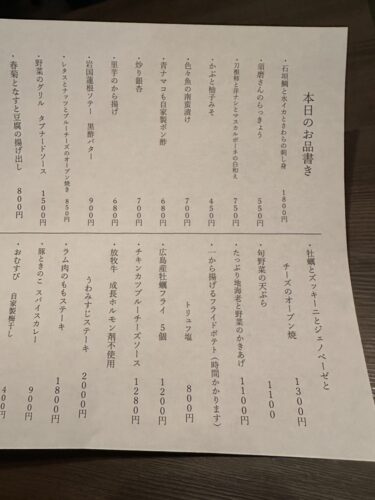 本日のお品書き
・石垣鯛と水イカとさわらの刺し身 1800円
・須磨さんのらっきょう 550円
・刀根柿と洋ナシとマスカルポーネの白和え 750円
・かぶと柚子みそ 450円
・色々魚の南蛮漬け 700円
・青ナマコも自家製ポン酢 680円
・炒り銀杏 700円
・里芋のから揚げ 680円
・岩国蓮根ソテー 黒酢バター 900円
・レタスとナッツとブルーチーズのオーブン焼き 850円
・野菜のグリル タプナードソース 1500円
・春菊となすと豆腐の揚げ出し 800円
・牡蠣とズッキーニとジェノベーゼと
チーズのオーブン焼 1300円
・旬野菜の天ぷら 1100
・たっぷり地海老と野菜のかきあげ 1100円
・一から揚げるフライドポテト(時間かかります)
トリュフ塩 800円
・広島産牡蠣フライ 5個 1200円
・チキンカツブルーチーズソース 1280円
・放牧牛 成長ホルモン剤不使用
うわみすじステーキ 2000円
・ラム肉のももステーキ 1800円
・豚ときのこ スパイスカレー 900円
・おむすび 自家製梅干し 400円